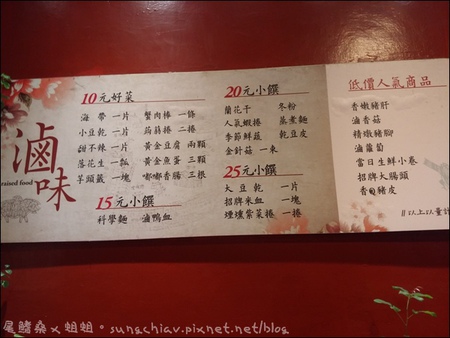 滷味
raised food
10元好菜
海帶 一片 蟹肉棒 一條
小豆乾 一片 蒟蒻捲 二捲
甜不辣 一片 黃金豆腐 兩顆
落花生 一瓢 黃金魚蛋 三顆
芋頭籤 一塊 嘟嘟香腸 三根
15元小饌
科學麵 滷鴨血
20元小饌
蘭花干 冬粉
人氣蝦捲 蒸煮麵
季節鮮蔬 乾豆皮
金針菇 一束
25元小饌
大豆乾 一片
招牌米血 一塊
煙燻紫菜捲 一捲
低價人氣商品
香嫩豬肝
滷香菇
精燉豬腳
滷蘿蔔
當日生鮮小卷
招牌大腸頭
香Q豬皮
以上以量計
尾鰭桑×蛆蛆。sungchiav.pixnet.net/blog